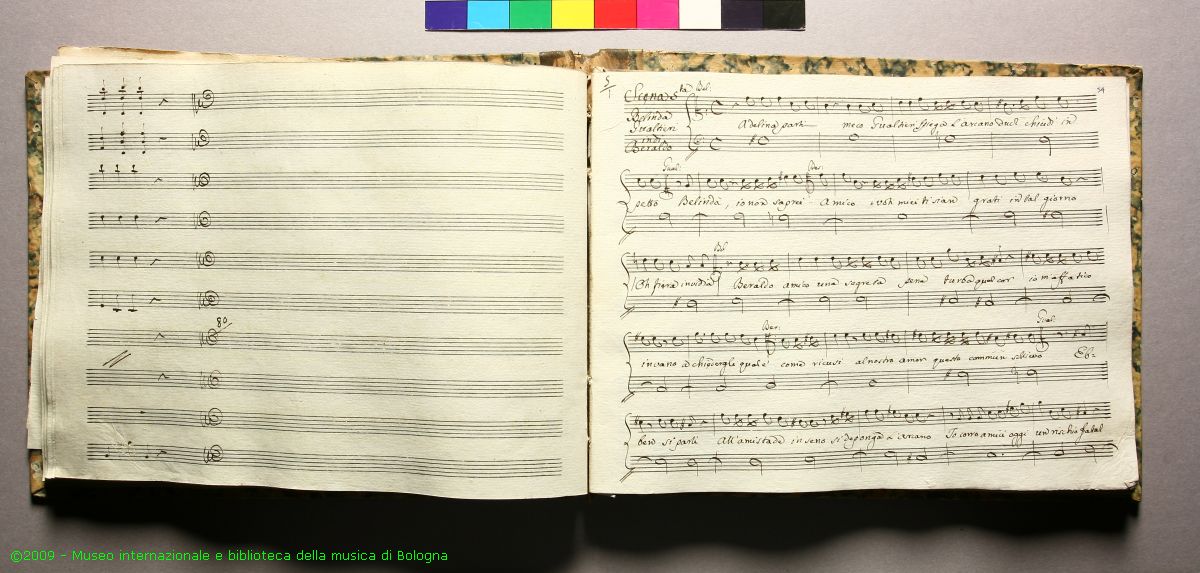 80
54
Scena 5ta Bel:
Belinda
Gualtieri
indi
Beraldo
Adelina partì meco Gualtier spiega L'arcano duol chiudi in
Gual: Ber:
petto Belinda, io non saprei Amico i voti miei ti sian grati in tal giorno
Bel
Oh fiera invidia Beraldo amico una segreta pena turba quel cor io m'affatico
Ber: Gual:
invano a chiedergli qual'è come ricusi al nostro amor questo commun sollievo Eb=
ben si parli All'amistade in seno si deponga L'arcano Io corro amici oggi un rischio fatal
©2009 - Museo internazionale e biblioteca della musica di Bologna